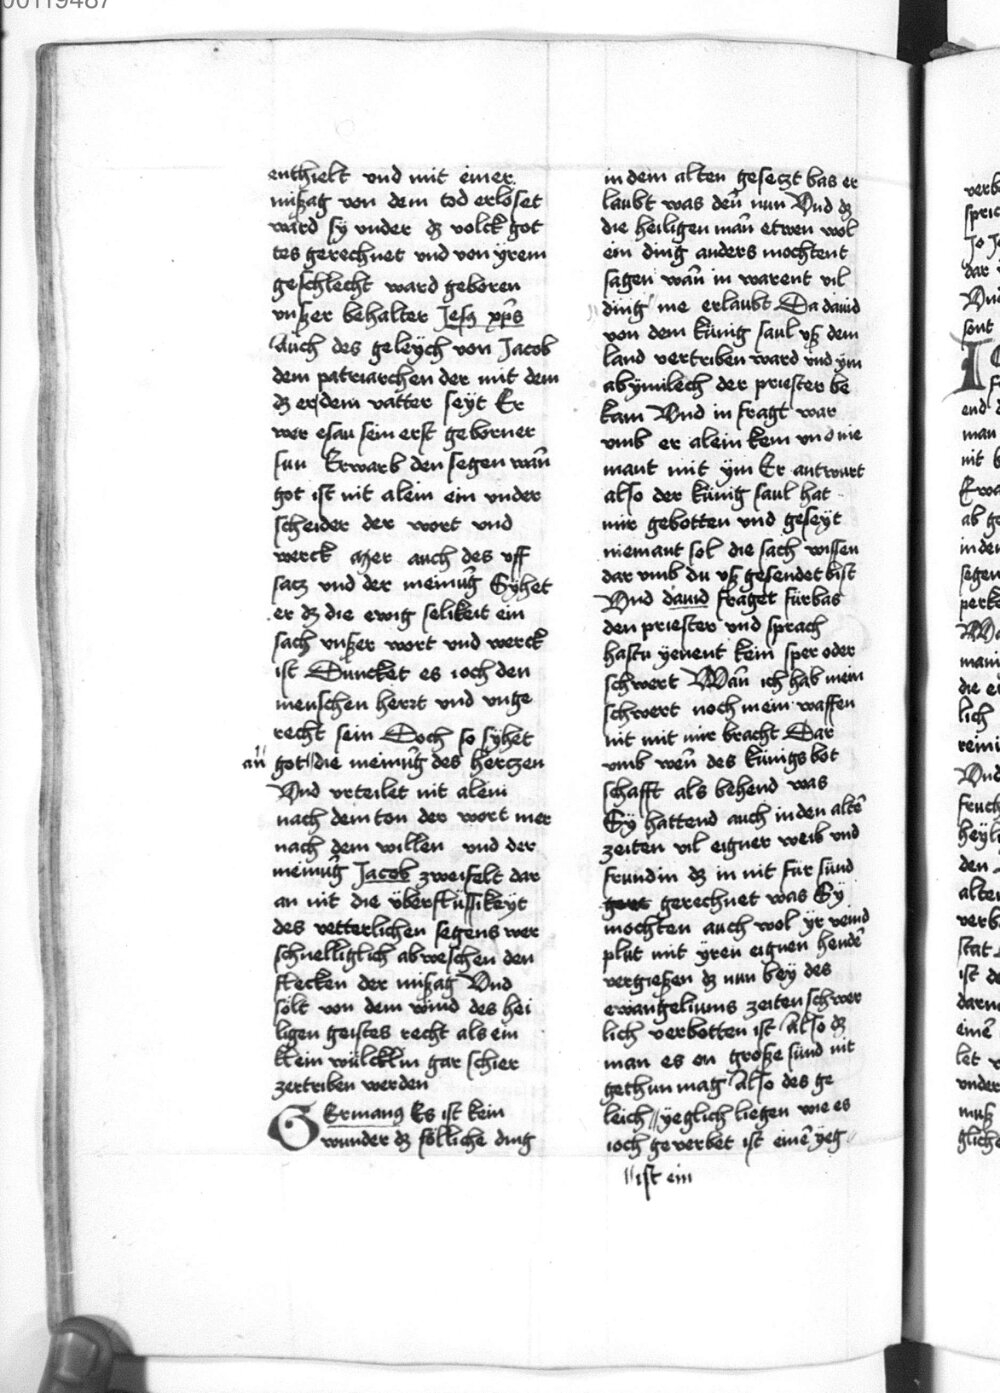 00119487
enthielt vnd mit einer
mißag von dem tod erlöset
ward sÿ vnder dz volck got
tes gerechnet vnd von ÿrem
geschlecht ward geboren
vnßer behalter Jesꝫ xp̄s
Auch des geleÿch von Jacob
dem patriarchen der mit dem
dz er dem vatter seÿt Er
wer esau sein erst geborner
sun Erwarb den segen wañ
got ist nit alein ein vnder
scheider der wort vnd
werck mer auch des vff
satz vnd der meinūg Sÿhet
er dz die ewig selikeit ein
sach vnßer wort vnd werck
ist Duncket es ioch den
menschen hert vnd vnge
recht sein Doch so sÿhet
an̄ got die meinūg des hertzen
Vnd vrteilet nit alein
nach dem ton der wort mer
nach dem willen vnd der
meinūg Jacob zweifelt dar
an nit die überflüssikeÿt
des vetterlichen segens wer
schnelliglich abweschen den
flecken der mißag Vnd
sölt von dem wind des hei
ligen geistes recht als ein
klein wülcklin gar schier
zertriben werden
Germanꝰ Es ist kein
wunder dz sölliche ding
in dem alten gesetzt bas er
laubt was deñ nun Vnd dz
die heiligen mañ etwen wol
ein ding anders mochtent
sagen wañ in warent vil
ding me erlaubt Da dauid
von dem künig saul vß dem
land vertriben ward vnd ÿm
abÿmilech der priester be
kam Vnd in fragt war
vmb er alein kem vnd nie
mant mit ÿm Er antwurt
also der künig saul hat
mir gebotten vnd geseÿt
niemant sol die sach wissen
dar vmb du vß gesendet bist
Vnd dauid fraget fürbas
den priester vnd sprach
hastu ÿenent kein sper oder
schwert Wañ ich hab mein
schwert noch mein waffen
nit mit mir bracht Dar
vmb weñ des künigs bot
schafft als behend was
Sÿ hattend auch in den altē
zeiten vil eigner weib vnd
frundin dz in nit für sünd
gerechnet was Sÿ
mochten auch wol ÿr veind
plut mit ÿren eignen hendē
vergießen dz nun beÿ des
ewangeliums zeiten schwer
lich verbotten ist Also dz
man es on große sünd nit
gethun mag Also des ge
leich ÿeglich liegen wie es
ioch geverbet ist einē ÿeg
ist ein